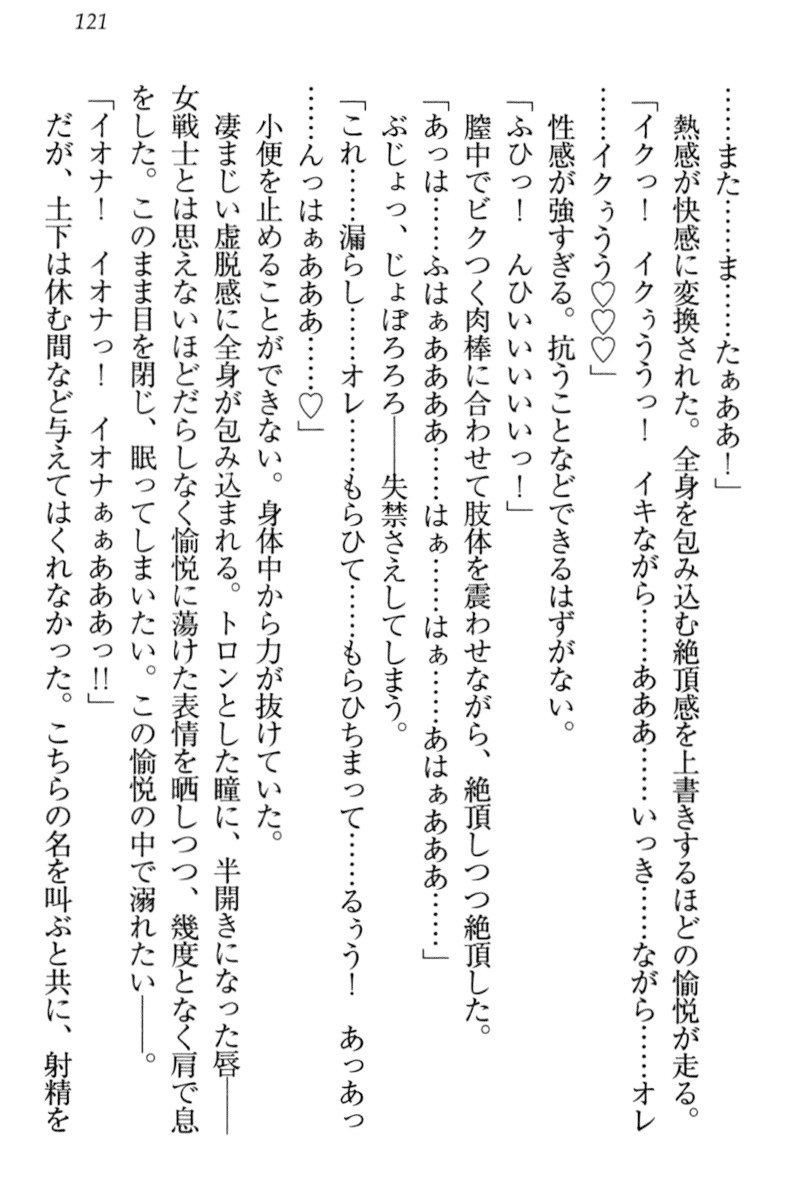 121
……また……ま……たぁああ！」
　熱感が快感に変換された。全身を包み込む絶頂感を上書きするほどの愉悦が走る。
「イクっ！　イクぅううっ！　イキながら……あああ……いっき……ながら……オレ
……イクぅうう♡♡♡」
　性感が強すぎる。抗うことなどできるはずがない。
「ふひっ！　んひいいいいいっ！」
　膣中でビクつく肉棒に合わせて肢体を震わせながら、絶頂しつつ絶頂した。
「あっは……ふはぁああああ……はぁ……はぁ……あはぁあああ……」
　ぶじょっ、じょぼろろろ――失禁さえしてしまう。
「これ……漏らし……オレ……もらひて……もらひちまって……るぅう！　あっあっ
……んっはぁあああ……♡」
　小便を止めることができない。身体中から力が抜けていた。
　凄まじい虚脱感に全身が包み込まれる。トロンとした瞳に、半開きになった唇――
女戦士とは思えないほどだらしなく愉悦に蕩けた表情を晒しつつ、幾度となく肩で息
をした。このまま目を閉じ、眠ってしまいたい。この愉悦の中で溺れたい――。
「イオナ！　イオナっ！　イオナぁぁあああっ!!」
　だが、土下は休む間など与えてはくれなかった。こちらの名を叫ぶと共に、射精を